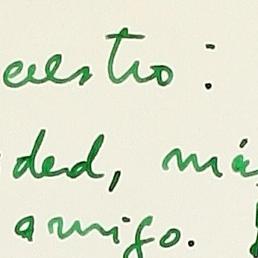 aestro:
ded, má
amigo.